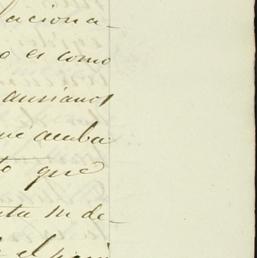 aciona-
o es como
ansianos
ue acaba
to que
ta m de-
el